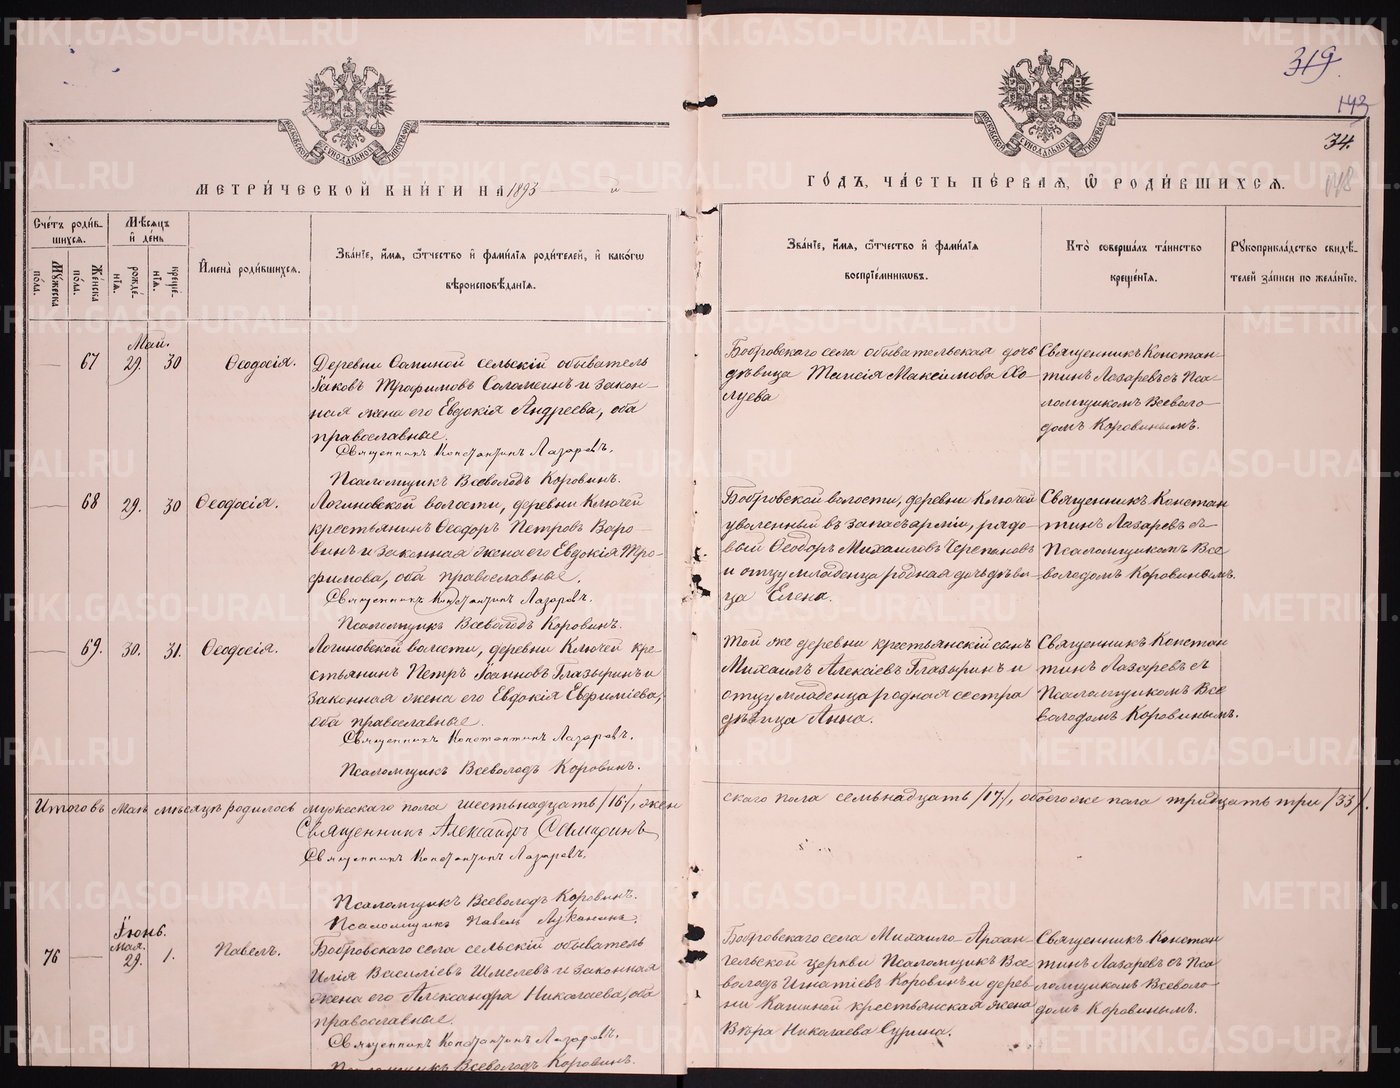 METRIKI.GASO-URAL.RU
319
143
34.
148
МОСКОВСКОЙ СѴНОДАЛЬНОЙ ТИПОГРАФІИ
МЕТРИ́ЧЕСКОЙ КНИ́ГИ НА 1893 й
ГО́ДЪ, ЧА́СТЬ ПЕ́РВАЯ, Ѽ РОДИ́ВШИХСЯ.
Сче́тъ роди́вшихся.
Му́жеска по́ла.
Же́нска по́ла.
Мѣ́сяцъ и де́нь
рожде́нія.
креще́нія.
И́мена роди́вшихся.
Зва́ніе, и́мя, ѻ́тчество и фами́лія роди́телей, и како́гѡ вѣроисповѣ́данія.
Зва́ніе, и́мя, ѻ́тчество и фами́лія воспріе́мниковъ.
Кто̀ соверша́лъ та́инство креще́нія.
Рукоприкла́дство свидѣ́телей за́писи по жела́нію.
Май.
67 29. 30 Ѳеодосія.
Деревни Сапиной сельскій обыватель
Іаковъ Трофимовъ Соломеинъ и закон-
ная жена его Евдокія Андреева, оба
православные.
Священникъ Константинъ Лазаревъ.
Псаломщикъ Всеволодъ Коровинъ.
Бобровскаго села обывательская дочь
дѣвица Таисія Максимова Хо-
луева
Священникъ Констан-
тинъ Лазаревъ съ Пса-
ломщикомъ Всеволо-
домъ Коровинымъ.
68 29. 30 Ѳеодосія.
Логиновской волости, деревни Ключей
крестьянинъ Ѳеодоръ Петровъ Варо-
винъ и законная жена его Евдокія Тро-
фимова, оба православные.
Священникъ Константинъ Лазаревъ.
Псаломщикъ Всеволодъ Коровинъ.
Бобровской волости, деревни Ключей
уволенный въ запасъ арміи, рядо-
вый Ѳеодоръ Михаиловъ Черепановъ
и отцу младенца родная дочь дѣви-
ца Елена.
Священникъ Констан
тинъ Лазаревъ съ
Псаломщикомъ Все
володомъ Коровинымъ.
69. 30. 31. Ѳеодосія.
Логиновской волости, деревни Ключей кре-
стьянинъ Петръ Іоанновъ Глазыринъ и
законная жена его Евдокія Евфиміева,
оба православные.
Священникъ Константинъ Лазаревъ.
Псаломщикъ Всеволодъ Коровинъ.
Той же деревни крестьянскій сынъ
Михаилъ Алексіевъ Глазыринъ и
отцу младенца родная сестра
дѣвица Анна.
Священникъ Констан
тинъ Лазаревъ съ
Псаломщикомъ Все
володомъ Коровинымъ.
Итого въ Маѣ мѣсяцѣ родилось мужескаго пола шестьнадцать /16/, жен
скаго пола семьнадцать /17/, обоего же пола тридцать три /33/.
Священникъ Александръ Смиринъ
Священникъ Константинъ Лазаревъ.
Псаломщикъ Всеволодъ Коровинъ.
Псаломщикъ Павелъ Луканинъ.
Іюнь.
Мая.
76 29. 1. Павелъ.
Бобровскаго села сельскій обыватель
Илія Василіевъ Шмелевъ и законная
жена его Александра Николаева, оба
православные.
Священникъ Константинъ Лазаревъ.
Псаломщикъ Всеволодъ Коровинъ.
Бобровскаго села Михаило-Архан-
гельской церкви Псаломщикъ Все
володъ Игнатіевъ Коровинъ и дерев
ни Каминой крестьянская жена
Вѣра Николаева Сурина.
Священникъ Констан
тинъ Лазаревъ съ Пса
ломщикомъ Всеволо-
домъ Коровинымъ.